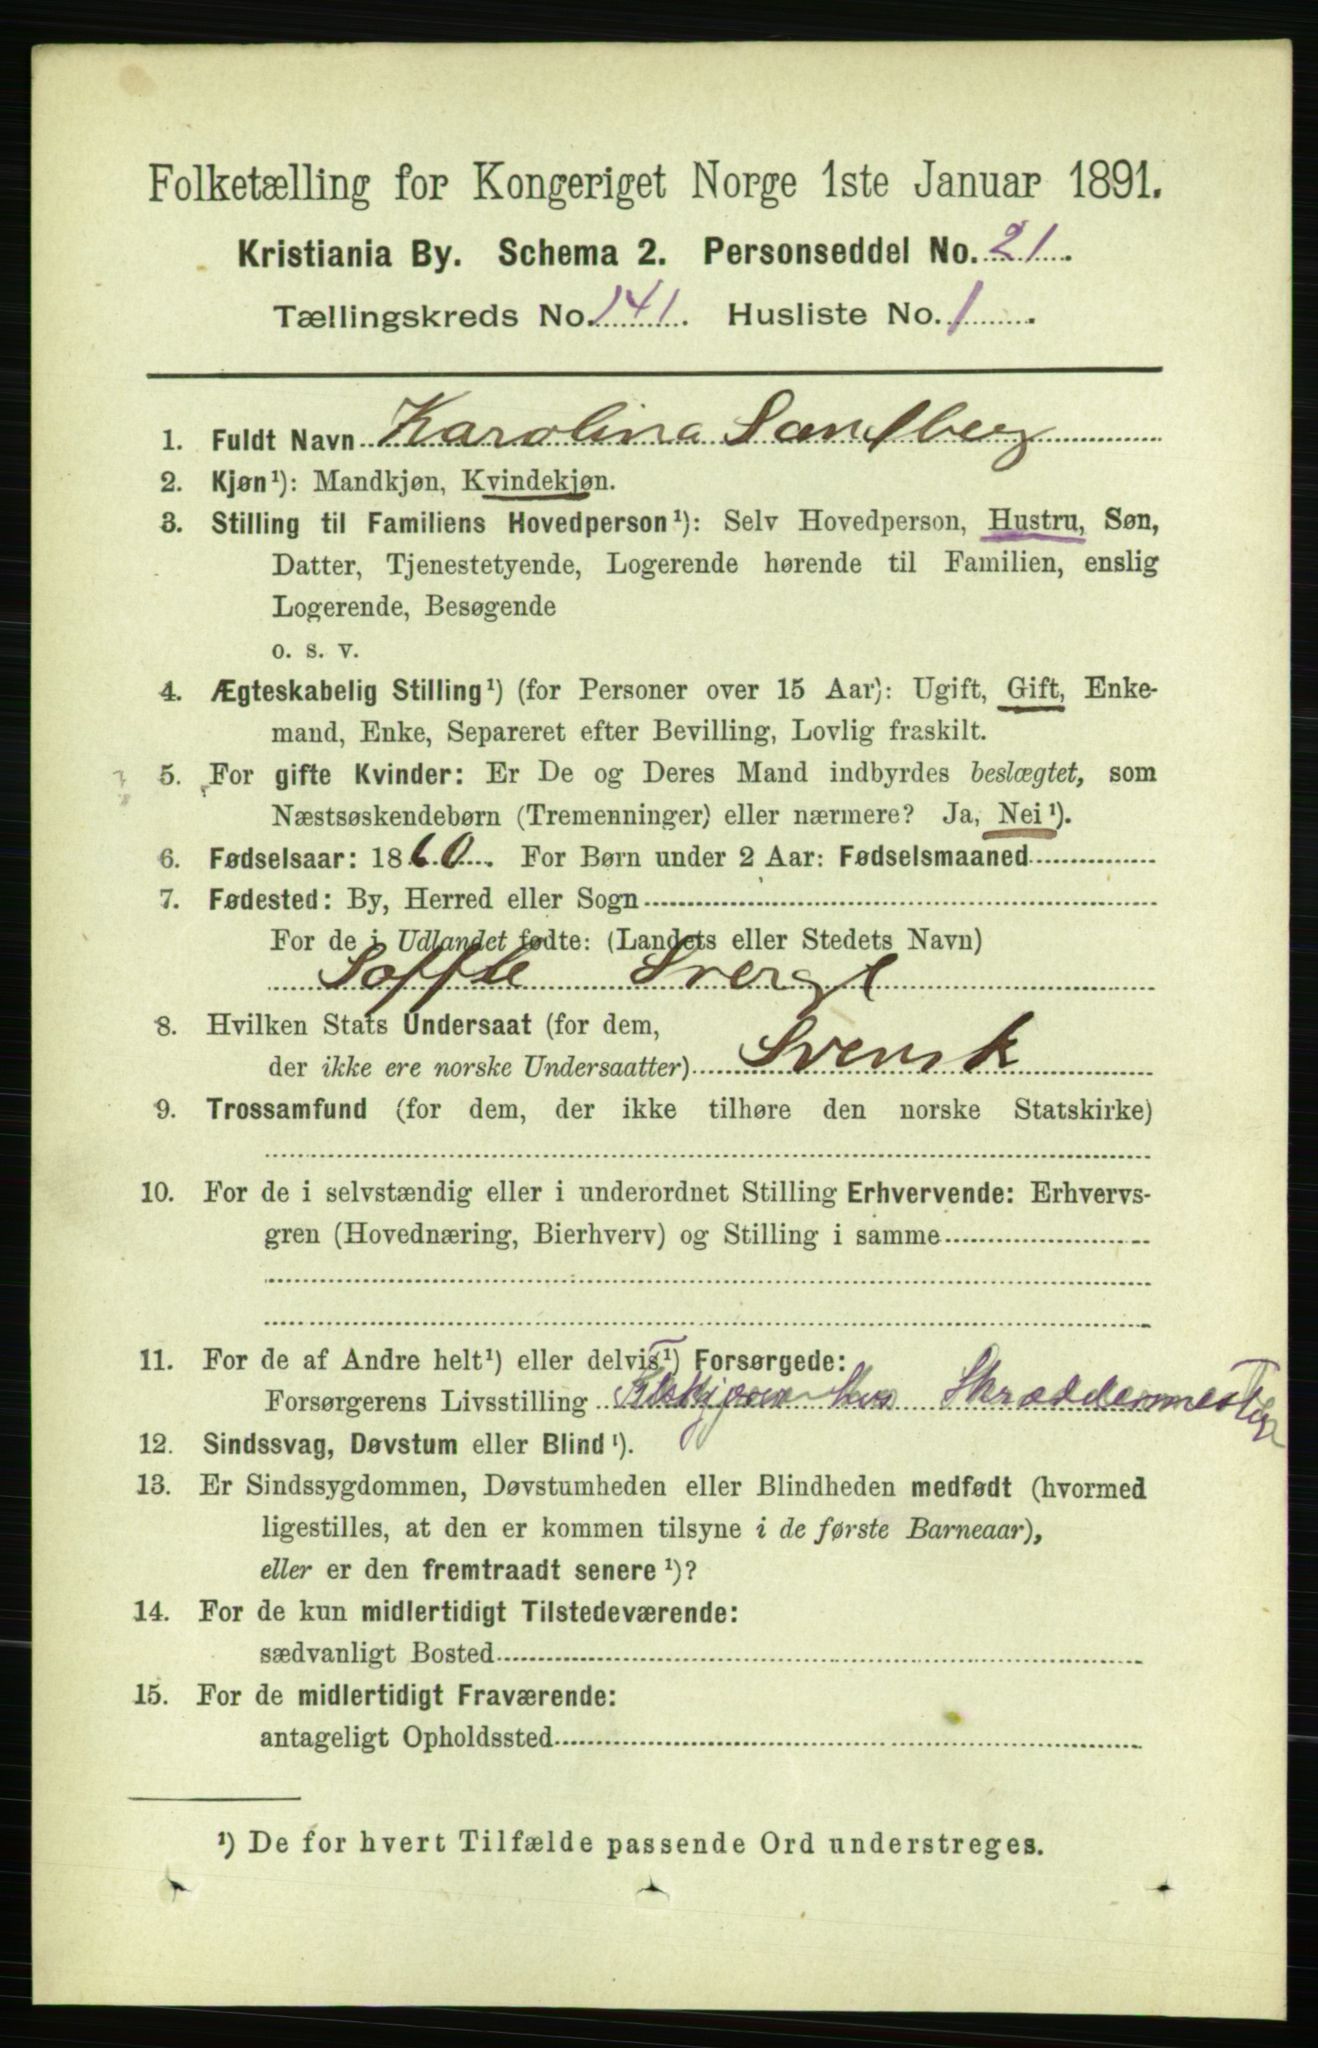 Folketælling for Kongeriget Norge 1ste Januar 1891.
Kristiania By. Schema 2. Personseddel No. 21.
Tællingskreds No. 141. Husliste No. 1.
1. Fuldt Navn Karolina Sandberg
2. Kjøn¹): Mandkjøn, Kvindekjøn.
3. Stilling til Familiens Hovedperson¹): Selv Hovedperson, Hustru, Søn,
Datter, Tjenestetyende, Logerende hørende til Familien, enslig
Logerende, Besøgende
o. s. v.
4. Ægteskabelig Stilling¹) (for Personer over 15 Aar): Ugift, Gift, Enke-
mand, Enke, Separeret efter Bevilling, Lovlig fraskilt.
5. For gifte Kvinder: Er De og Deres Mand indbyrdes beslægtet, som
Næstsøskendebørn (Tremenninger) eller nærmere? Ja, Nei¹).
6. Fødselsaar: 1860. For Børn under 2 Aar: Fødselsmaaned
7. Fødested: By, Herred eller Sogn
For de i Udlandet fødte: (Landets eller Stedets Navn)
Soffle Sverge
8. Hvilken Stats Undersaat (for dem,
der ikke ere norske Undersaatter) Svensk
9. Trossamfund (for dem, der ikke tilhøre den norske Statskirke)
10. For de i selvstændig eller i underordnet Stilling Erhvervende: Erhvervs-
gren (Hovednæring, Bierhverv) og Stilling i samme
11. For de af Andre helt¹) eller delvis¹) Forsørgede:
Forsørgerens Livsstilling hos Skræddermester
12. Sindssvag, Døvstum eller Blind¹).
13. Er Sindssygdommen, Døvstumheden eller Blindheden medfødt (hvormed
ligestilles, at den er kommen tilsyne i de første Barneaar),
eller er den fremtraadt senere¹)?
14. For de kun midlertidigt Tilstedeværende:
sædvanligt Bosted
15. For de midlertidigt Fraværende:
antageligt Opholdssted
¹) De for hvert Tilfælde passende Ord understreges.